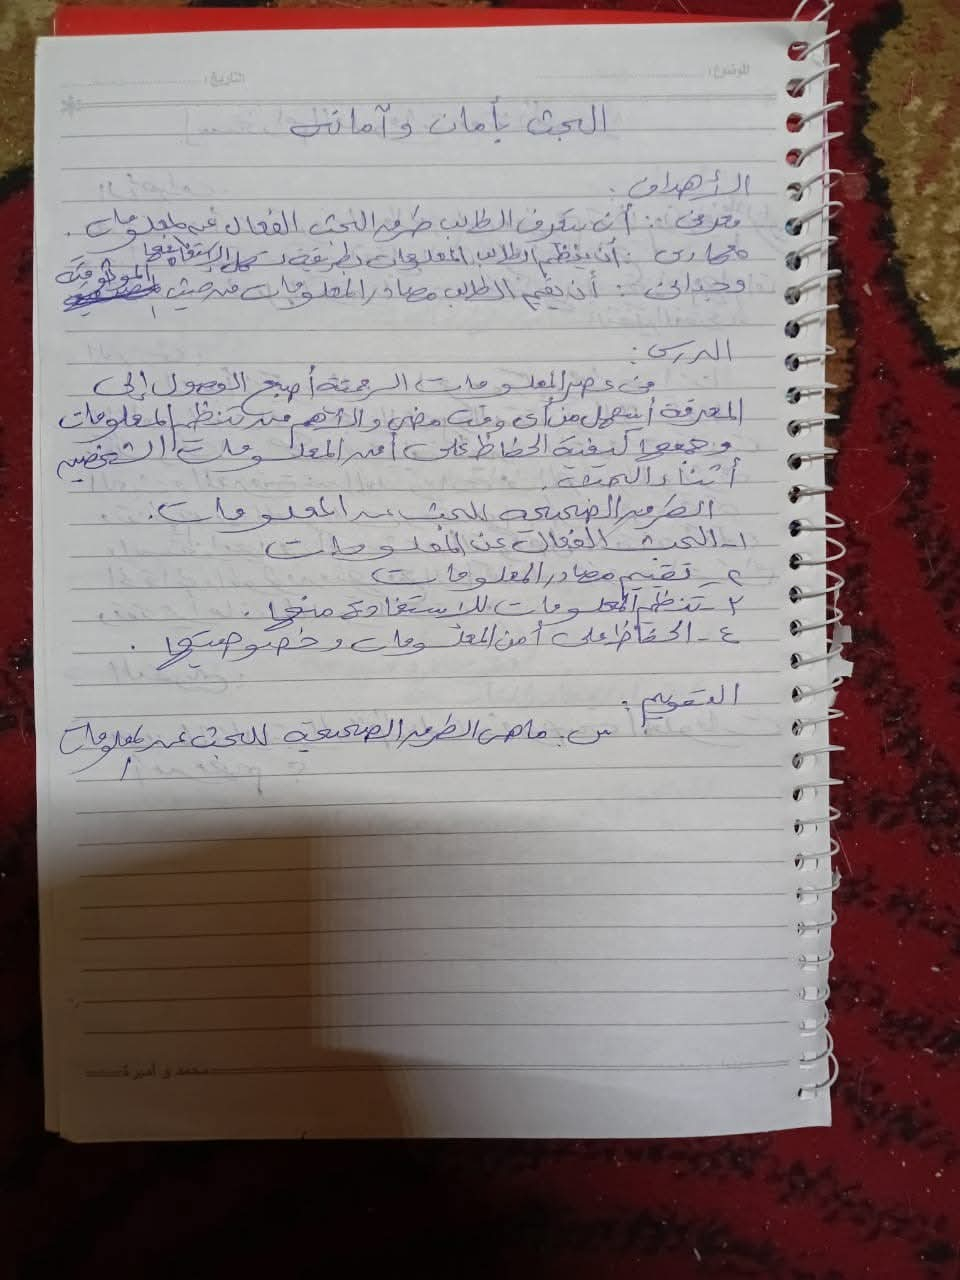 الموضوع: التاريخ:
البحث بأمان وآمانه
الأهداف:
معرفى: أن يتعرف الطالب طرق البحث الفعال عن المعلومات.
مهارى: أن ينظم الطالب المعلومات بطريقة تسهل الاستفادة منها
وجدانى: أن يقيم الطالب مصادر المعلومات من حيث الموثوقية
الدرس:
فى عصر المعلومات الرقمية أصبح الوصول إلى
المعرفة أسهل من أى وقت مضى والأهم من تنظم المعلومات
وجمعها كيفية الحفاظ على أمن المعلومات الشخصية
أثناء البحث.
الطرق الصحيحة للبحث عن المعلومات:
١- البحث الفعال عن المعلومات
٢- تقييم مصادر المعلومات
٣- تنظم المعلومات للاستفادة منها.
٤- الحفاظ على أمن المعلومات وخصوصيتها.
التقويم:
س: ما هى الطرق الصحيحة للبحث عن المعلومات
محمد و أميرة